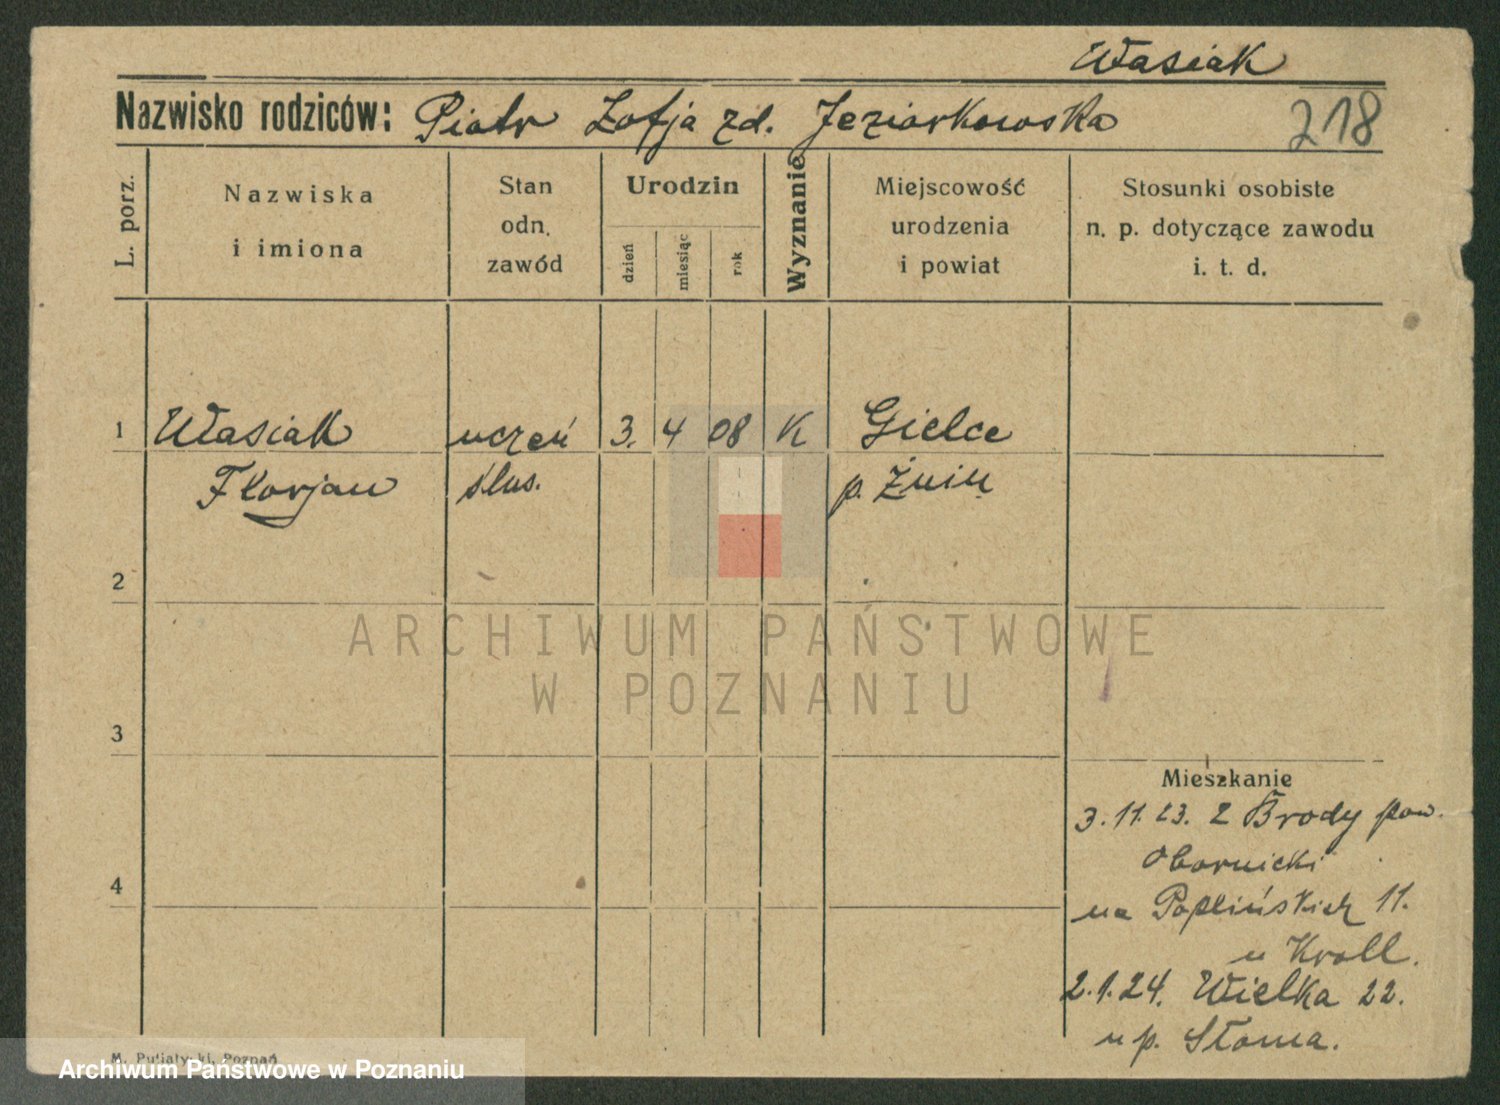 Wasiak
Nazwisko rodziców: Piotr Zofja zd. Jeziorkowska
218
L. porz.
Nazwiska
i imiona
Stan
odn.
zawód
Urodzin
dzień
miesiąc
rok
Wyznanie
Miejscowość
urodzenia
i powiat
Stosunki osobiste
n. p. dotyczące zawodu
i. t. d.
1 Wasiak uczeń 3. 4 08 K Gielce
Florjan ślus. p. Żnin
2
ARCHIWUM PAŃSTWOWE
W POZNANIU
3
Mieszkanie
3. 11. 23. z Brody pow.
Obornicki
4
na Poplińskich 11.
u Kroll.
2.1.24. Wielka 22.
u p. Słoma.
M. Putiatycki, Poznań
Archiwum Państwowe w Poznaniu